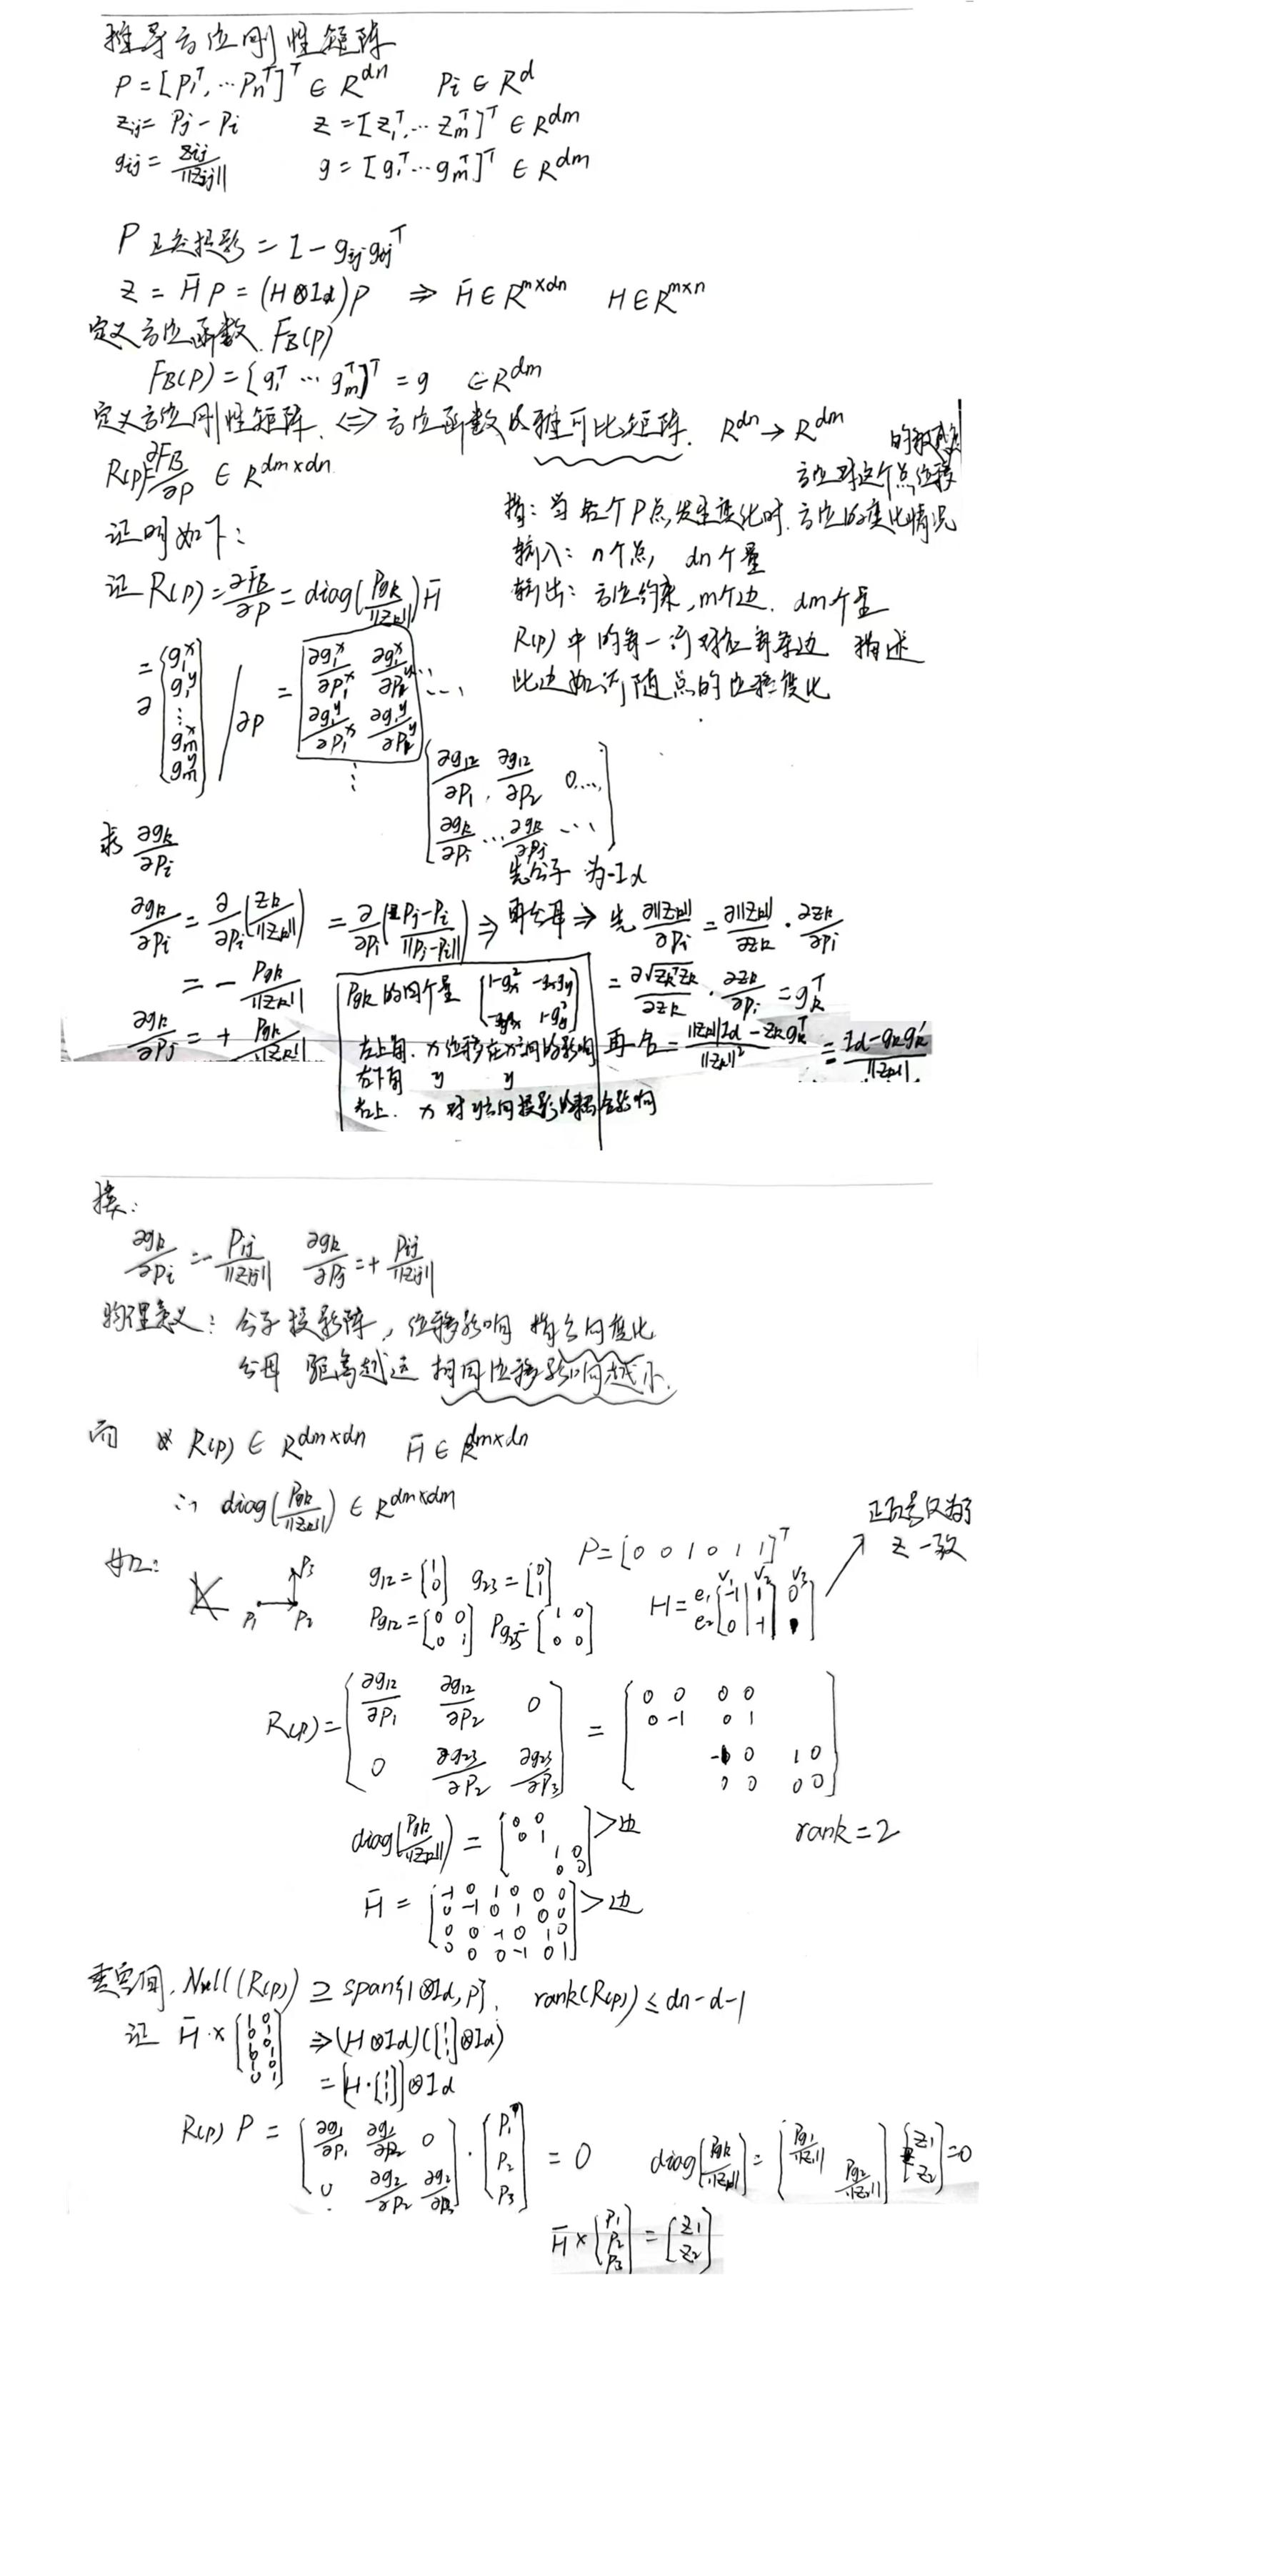 推导方位刚性矩阵
P = [P₁ᵀ, ⋯ Pₙᵀ]ᵀ ∈ R^{dn}    Pᵢ ∈ R^d
z_{ij} = Pⱼ - Pᵢ    z = [z₁ᵀ, ⋯ z_mᵀ]ᵀ ∈ R^{dm}
g_{ij} = z_{ij}/||z_{ij}||    g = [g₁ᵀ ⋯ g_mᵀ]ᵀ ∈ R^{dm}
P 正交投影 = I - g_{ij} g_{ij}ᵀ
z = H̄ P = (H⊗Id)P ⇒ H̄ ∈ R^{m×dn}    H ∈ R^{m×n}
定义方位函数. F_B(P)
F_B(P) = [g₁ᵀ ⋯ g_mᵀ]ᵀ = g ∈ R^{dm}
定义方位刚性矩阵. ⇔ 方位函数的雅可比矩阵. R^{dn} → R^{dm}
R(p) = ∂F_B/∂P ∈ R^{dm×dn}
方位对这个点位移
指: 当各个P点发生变化时. 方位的变化情况
证明如下:
输入: n个点, dn个量
证 R(p) = ∂F_B/∂P = diag(P_{gk}/||z_k||) H̄
输出: 方位约束, m个边. dm个量
R(p) 中的每一行对应每条边 描述
此边如何随点的位移变化
= ∂ [g₁ˣ g₁ʸ ⋮ g_mˣ g_mʸ] / ∂P = [∂g₁ˣ/∂P₁ˣ ∂g₁ˣ/∂P₁ʸ ∂g₁ʸ/∂P₁ˣ ∂g₁ʸ/∂P₁ʸ] ⋯
[∂g₁₂/∂P₁ . ∂g₁₂/∂P₂ 0 ⋯
∂g_k/∂Pᵢ ⋯ ∂g_k/∂Pⱼ ⋯]
求 ∂g_k/∂Pᵢ
先分子 为-Id
∂g_k/∂Pᵢ = ∂/∂Pᵢ (z_k/||z_k||) = ∂/∂Pᵢ (Pⱼ-Pᵢ/||Pⱼ-Pᵢ||) ⇒ 再分母 ⇒ 先 ∂||z_k||/∂Pᵢ = ∂||z_k||/∂z_k · ∂z_k/∂Pᵢ
= - P_{gk}/||z_k||
= ∂√(z_kᵀz_k)/∂z_k · ∂z_k/∂Pᵢ = g_kᵀ
∂g_k/∂Pⱼ = + P_{gk}/||z_k||
再合 = (||z_k||Id - z_k g_kᵀ)/||z_k||² = (Id - g_k g_k')/||z_k||
P_{gk} 的四个量 [1-gₓ² -gₓg_y -g_ygₓ 1-g_y²]
左上角. x 位移在x方向的影响
右下角 y y
右上. x 对y方向投影的耦合影响
接:
∂g_k/∂Pᵢ = - P_{ij}/||z_{ij}||    ∂g_k/∂Pⱼ = + P_{ij}/||z_{ij}||
物理意义: 分子投影阵, 位移影响 指方向变化
分母 距离越远 相同位移影响越小.
而 R(p) ∈ R^{dm×dn}    H̄ ∈ R^{dm×dn}
∴ diag(P_{gk}/||z_k||) ∈ R^{dm×dm}
正负号仅为了
z 一致
如: P₁ P₂ P₃
g₁₂ = [1 0]    g₂₃ = [0 1]    P = [0 0 1 0 1 1]ᵀ
P_{g12} = [0 0 0 1]    P_{g23} = [1 0 0 0]
H = e₁ e₂ v₁ v₂ v₃ [-1 1 0
0 -1 1]
R(p) = [∂g₁₂/∂P₁ ∂g₁₂/∂P₂ 0
0 ∂g₂₃/∂P₂ ∂g₂₃/∂P₃] = [0 0 0 0
0 -1 0 1
-1 0 1 0
0 0 0 0]
diag(P_{gk}/||z_k||) = [0 0 0 1 1 0 0 0] > 边
rank = 2
H̄ = [-1 0 1 0 0 0
0 -1 0 1 0 0
0 0 -1 0 1 0
0 0 0 -1 0 1] > 边
零空间. Null(R(p)) ⊇ span{1⊗Id, P}.    rank(R(p)) ≤ dn-d-1
证 H̄ · × [1 0 0 1 1 0 0 1 1 0 0 1] ⇒ (H⊗Id)([1 1 1]⊗Id)
= [H·[1 1 1]]⊗Id
R(p) P = [∂g₁/∂P₁ ∂g₁/∂P₂ 0
0 ∂g₂/∂P₂ ∂g₂/∂P₃] · [P₁ P₂ P₃] = 0
diag[P_{gk}/||z_k||] = [P_{g1}/||z₁|| P_{g2}/||z₂||] [z₁ z₂] = 0
H̄ × [P₁ P₂ P₃] = [z₁ z₂]